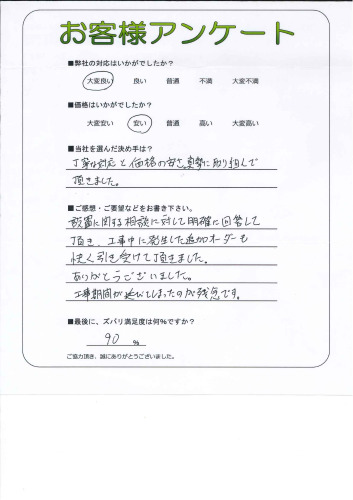 お客様アンケート
■弊社の対応はいかがでしたか？
大変良い 良い 普通 不満 大変不満
■価格はいかがでしたか？
大変安い 安い 普通 高い 大変高い
■当社を選んだ決め手は？
丁寧な対応と価格の安さ。真剣に取り組んで
頂きました。
■ご感想・ご要望などをお書き下さい。
設置に関する相談に対して明確に回答して
頂き、工事中に発生した追加オーダーも
快く引き受けて頂きました。
ありがとうございました。
工事期間が延びてしまったのが残念です。
■最後に、ズバリ満足度は何%ですか？
90 %
ご協力頂き、誠にありがとうございました。